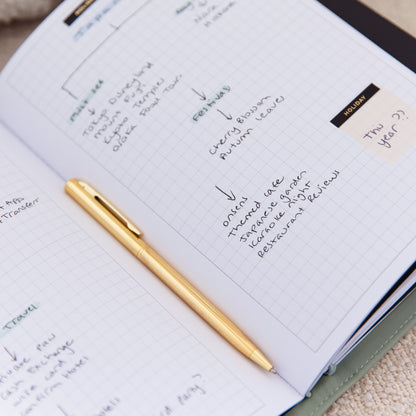 Nara
Hakone
Must-see
Tokyo Disneyland
Mount Fuji
Kyoto Temples
Osaka Food Tour
Festivals
Cherry Blossom
Autumn leaves
HOLIDAY
this
year ??
onsens
Themed cafe
Japanese garden
Karaoke night
Restaurant Reviews
Transfer
Travel
cash Exchange
card
confirm Hotels
party?